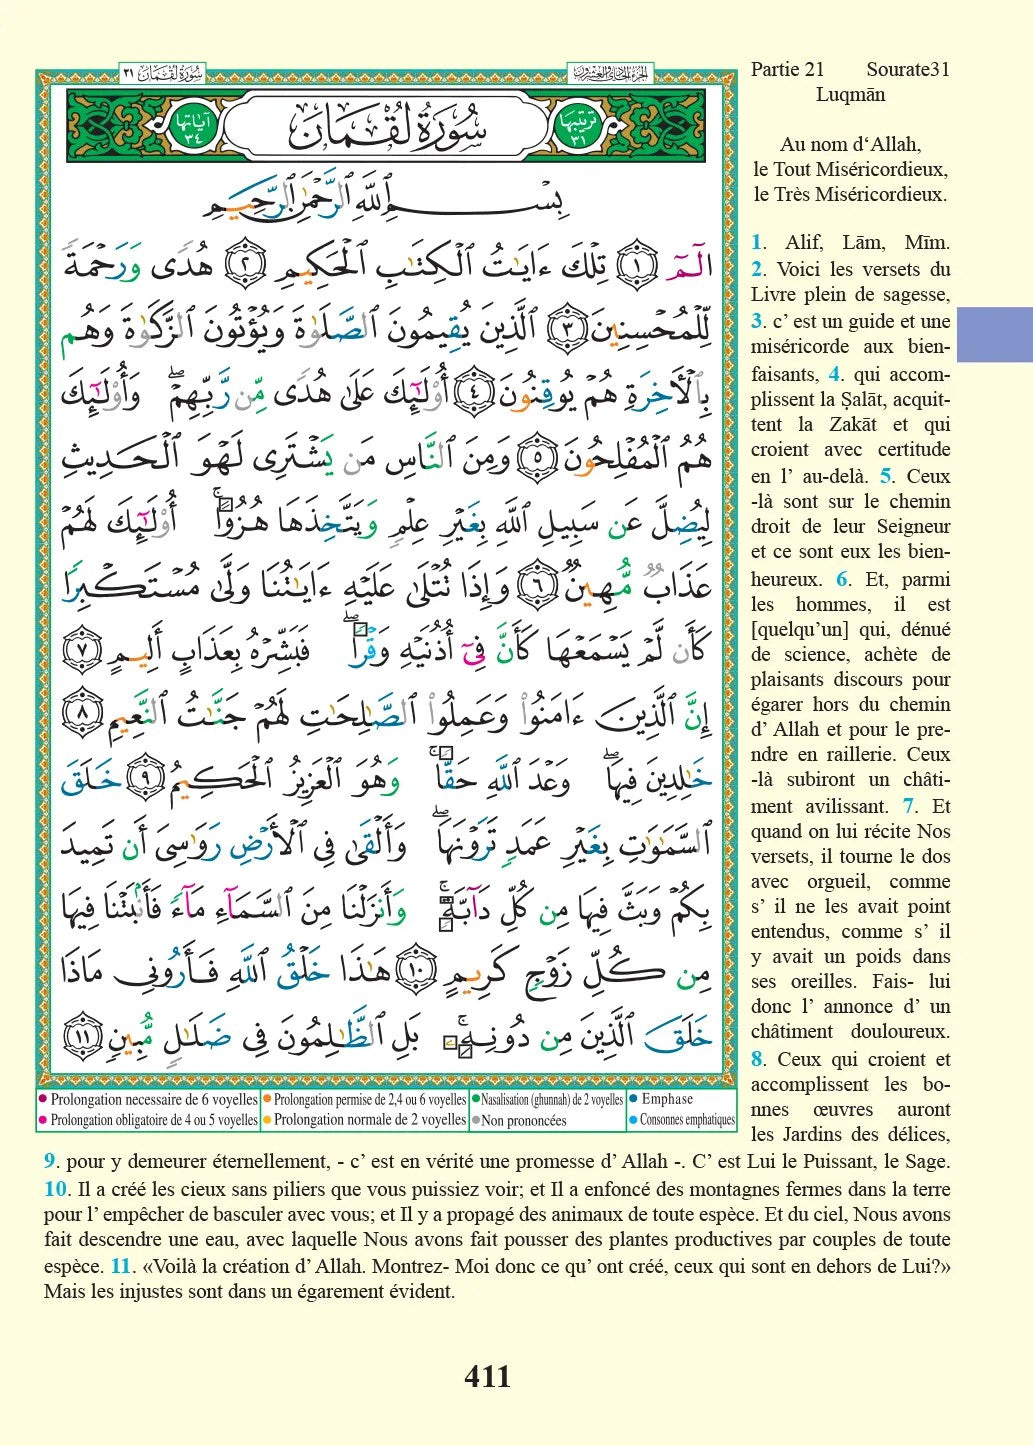 سُورَةُ لُقْمَان ٣١
الجزء الحادي والعشرون
آياتها ٣٤
سُورَةُ لُقْمَانَ
ترتيبها ٣١
بِسْمِ ٱللَّهِ ٱلرَّحْمَٰنِ ٱلرَّحِيمِ
الٓمٓ ١ تِلْكَ ءَايَٰتُ ٱلْكِتَٰبِ ٱلْحَكِيمِ ٢ هُدًى وَرَحْمَةً
لِّلْمُحْسِنِينَ ٣ ٱلَّذِينَ يُقِيمُونَ ٱلصَّلَوٰةَ وَيُؤْتُونَ ٱلزَّكَوٰةَ وَهُم
بِٱلْأَخِرَةِ هُمْ يُوقِنُونَ ٤ أُو۟لَٰٓئِكَ عَلَىٰ هُدًى مِّن رَّبِّهِمْ ۖ وَأُو۟لَٰٓئِكَ
هُمُ ٱلْمُفْلِحُونَ ٥ وَمِنَ ٱلنَّاسِ مَن يَشْتَرِى لَهْوَ ٱلْحَدِيثِ
لِيُضِلَّ عَن سَبِيلِ ٱللَّهِ بِغَيْرِ عِلْمٍ وَيَتَّخِذَهَا هُزُوًا ۚ أُو۟لَٰٓئِكَ لَهُمْ
عَذَابٌ مُّهِينٌ ٦ وَإِذَا تُتْلَىٰ عَلَيْهِ ءَايَٰتُنَا وَلَّىٰ مُسْتَكْبِرًا
كَأَن لَّمْ يَسْمَعْهَا كَأَنَّ فِىٓ أُذُنَيْهِ وَقْرًا ۖ فَبَشِّرْهُ بِعَذَابٍ أَلِيمٍ ٧
إِنَّ ٱلَّذِينَ ءَامَنُوا۟ وَعَمِلُوا۟ ٱلصَّٰلِحَٰتِ لَهُمْ جَنَّٰتُ ٱلنَّعِيمِ ٨
خَٰلِدِينَ فِيهَا ۖ وَعْدَ ٱللَّهِ حَقًّا ۚ وَهُوَ ٱلْعَزِيزُ ٱلْحَكِيمُ ٩ خَلَقَ
ٱلسَّمَٰوَٰتِ بِغَيْرِ عَمَدٍ تَرَوْنَهَا ۖ وَأَلْقَىٰ فِى ٱلْأَرْضِ رَوَٰسِىَ أَن تَمِيدَ
بِكُمْ وَبَثَّ فِيهَا مِن كُلِّ دَآبَّةٍ ۚ وَأَنزَلْنَا مِنَ ٱلسَّمَآءِ مَآءً فَأَنۢبَتْنَا فِيهَا
مِن كُلِّ زَوْجٍ كَرِيمٍ ١٠ هَٰذَا خَلْقُ ٱللَّهِ فَأَرُونِى مَاذَا
خَلَقَ ٱلَّذِينَ مِن دُونِهِۦ ۚ بَلِ ٱلظَّٰلِمُونَ فِى ضَلَٰلٍ مُّبِينٍ ١١
Prolongation necessaire de 6 voyelles
Prolongation permise de 2,4 ou 6 voyelles
Nasalisation (ghunnah) de 2 voyelles
Emphase
Prolongation obligatoire de 4 ou 5 voyelles
Prolongation normale de 2 voyelles
Non prononcées
Consonnes emphatiques
Partie 21 Sourate31
Luqmān
Au nom d‘Allah,
le Tout Miséricordieux,
le Très Miséricordieux.
1. Alif, Lām, Mīm.
2. Voici les versets du
Livre plein de sagesse,
3. c’ est un guide et une
miséricorde aux bien-
faisants, 4. qui accom-
plissent la Ṣalāt, acquit-
tent la Zakāt et qui
croient avec certitude
en l’ au-delà. 5. Ceux
-là sont sur le chemin
droit de leur Seigneur
et ce sont eux les bien-
heureux. 6. Et, parmi
les hommes, il est
[quelqu’un] qui, dénué
de science, achète de
plaisants discours pour
égarer hors du chemin
d’ Allah et pour le pre-
ndre en raillerie. Ceux
-là subiront un châti-
ment avilissant. 7. Et
quand on lui récite Nos
versets, il tourne le dos
avec orgueil, comme
s’ il ne les avait point
entendus, comme s’ il
y avait un poids dans
ses oreilles. Fais- lui
donc l’ annonce d’ un
châtiment douloureux.
8. Ceux qui croient et
accomplissent les bo-
nnes œuvres auront
les Jardins des délices,
9. pour y demeurer éternellement, - c’ est en vérité une promesse d’ Allah -. C’ est Lui le Puissant, le Sage.
10. Il a créé les cieux sans piliers que vous puissiez voir; et Il a enfoncé des montagnes fermes dans la terre
pour l’ empêcher de basculer avec vous; et Il y a propagé des animaux de toute espèce. Et du ciel, Nous avons
fait descendre une eau, avec laquelle Nous avons fait pousser des plantes productives par couples de toute
espèce. 11. «Voilà la création d’ Allah. Montrez- Moi donc ce qu’ ont créé, ceux qui sont en dehors de Lui?»
Mais les injustes sont dans un égarement évident.
411